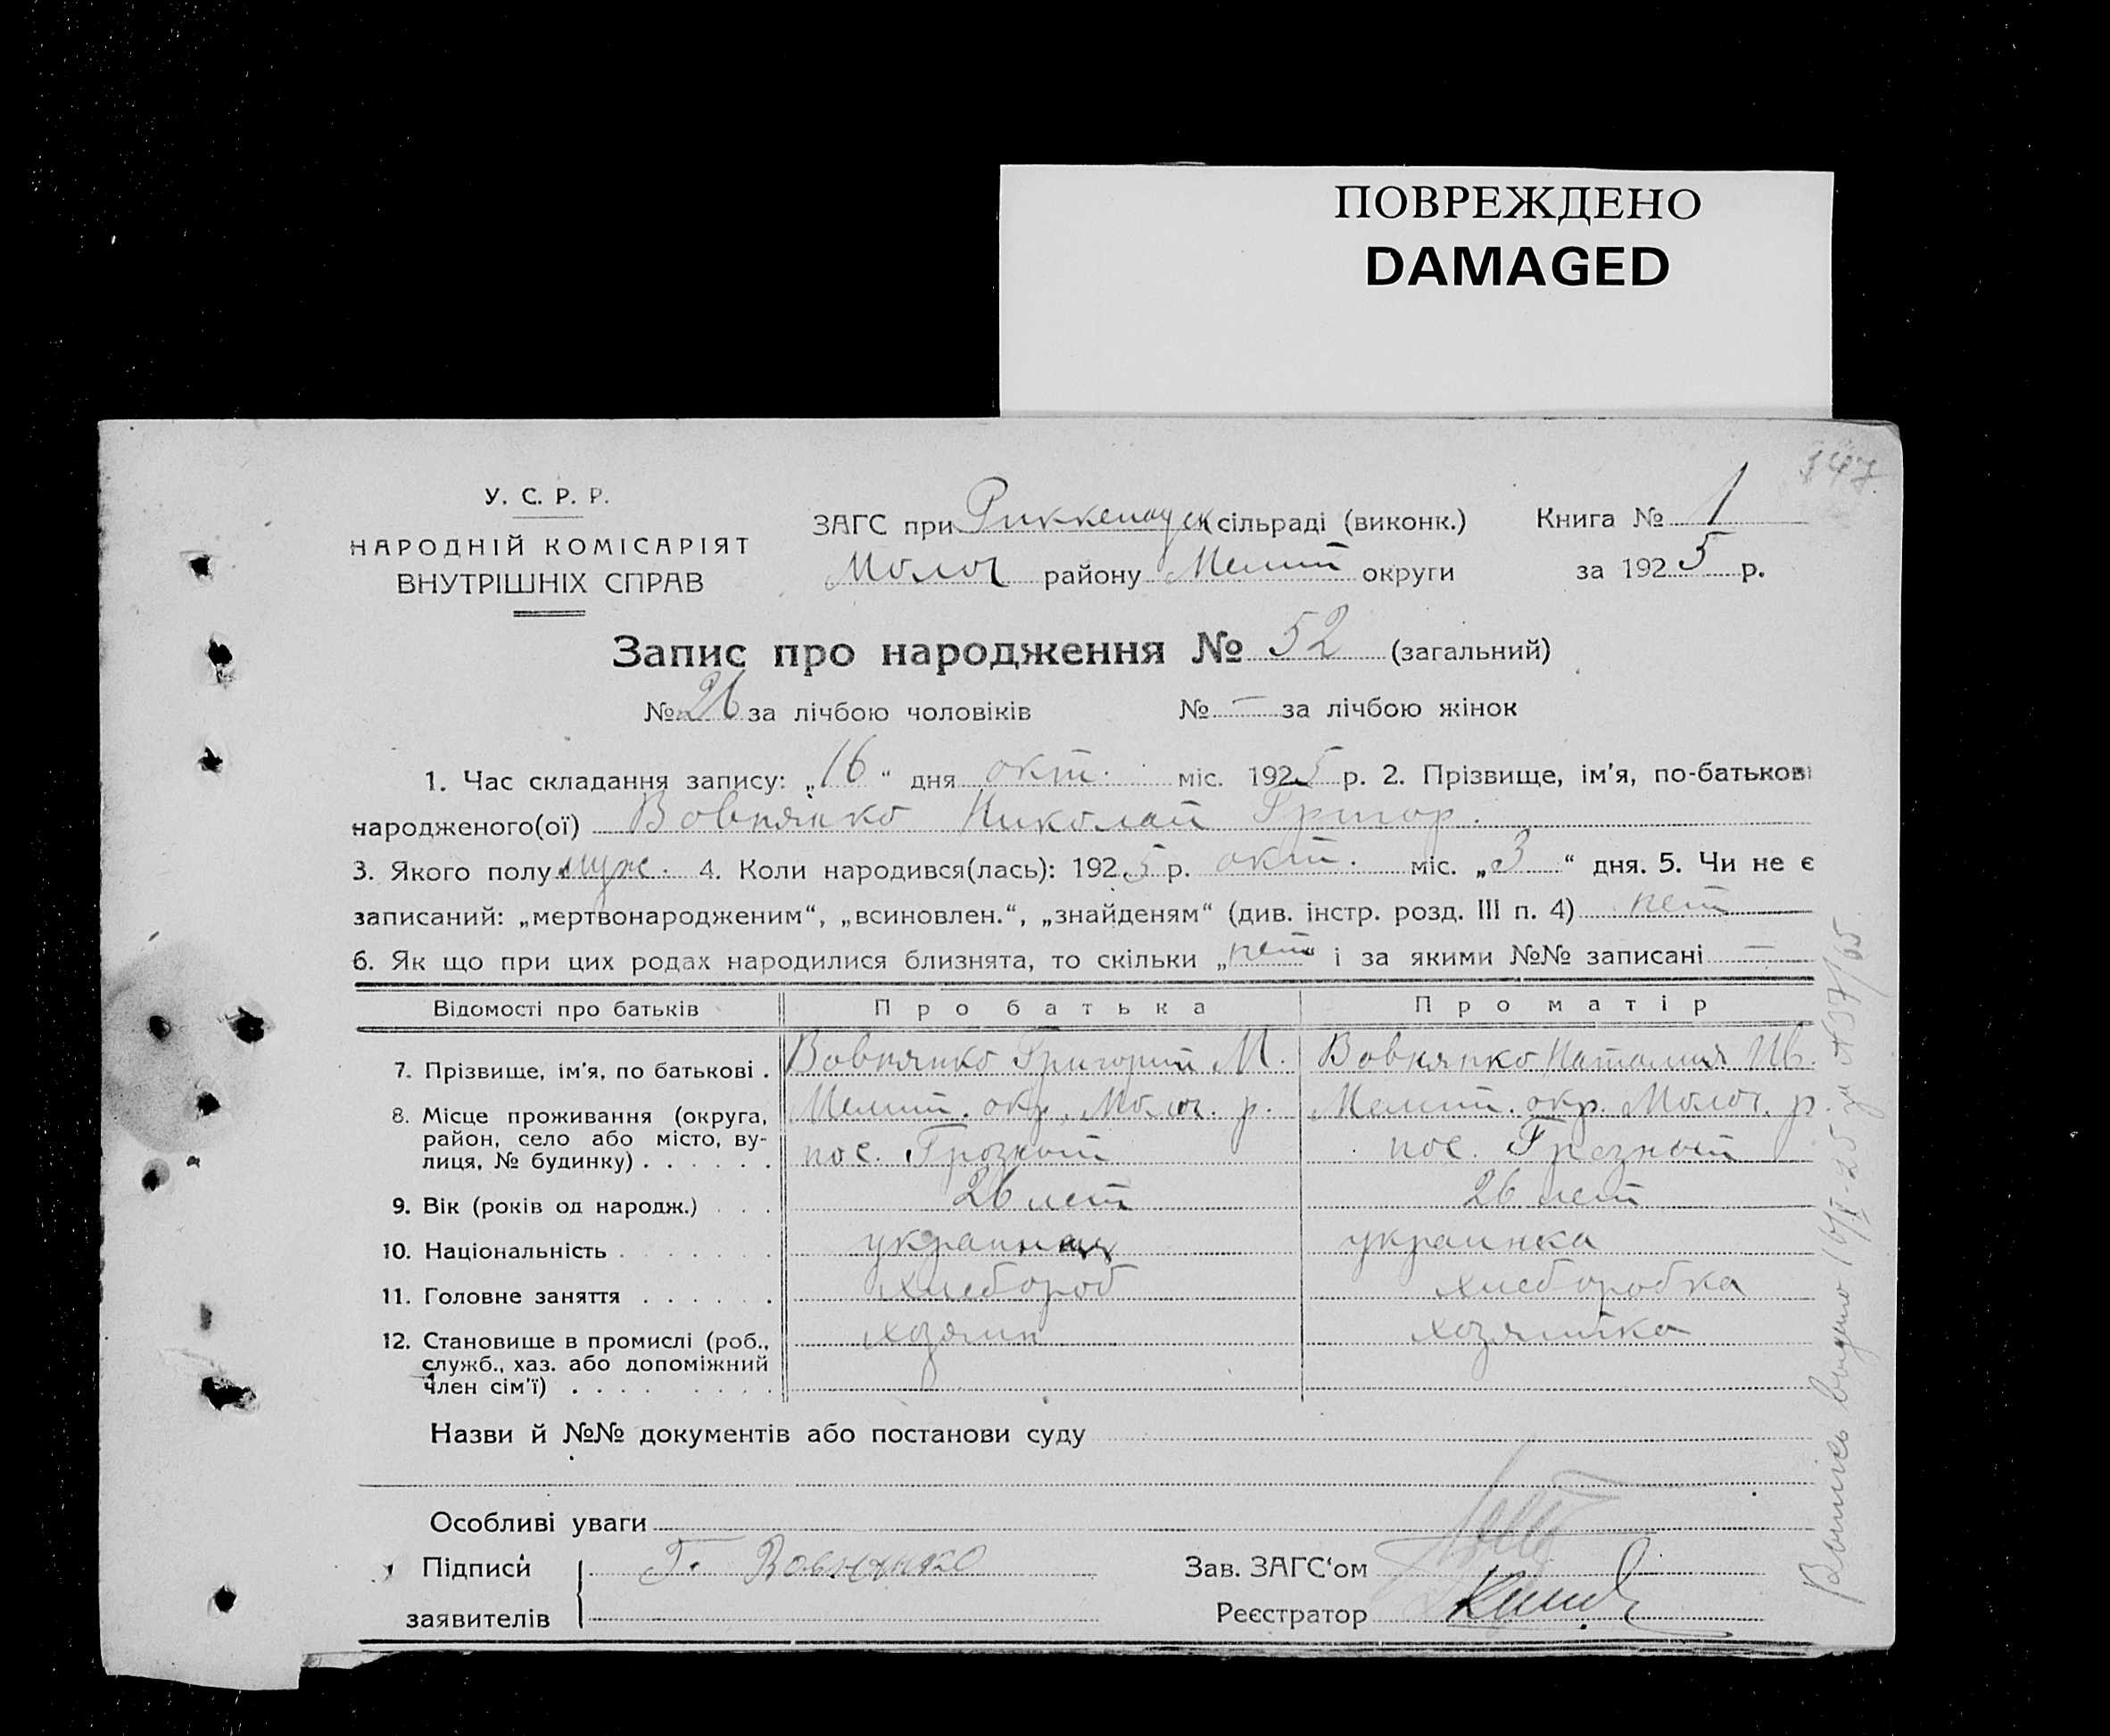 ПОВРЕЖДЕНО
DAMAGED
347
У. С. Р. Р.
НАРОДНІЙ КОМІСАРІЯТ
ВНУТРІШНІХ СПРАВ
ЗАГС при Риккенауск сільраді (виконк.) Книга № 1
Молоч району Мелит округи за 1925 р.
Запис про народження № 52 (загальний)
№ 26 за лічбою чоловіків № — за лічбою жінок
1. Час складання запису: „16“ дня окт. міс. 1925 р. 2. Прізвище, ім'я, по-батькові
народженого(ої) Вовнянко Николай Григор.
3. Якого полу муж. 4. Коли народився(лась): 1925 р. окт. міс. „3“ дня. 5. Чи не є
записаний: „мертвонародженим“, „всиновлен.“, „знайденям“ (див. інстр. розд. III п. 4) нет
6. Як що при цих родах народилися близнята, то скільки „нет і за якими №№ записані —
Відомості про батьків Про батька Про матір
7. Прізвище, ім'я, по батькові . Вовнянко Григорий М. Вовнянко Наталия Ив.
8. Місце проживання (округа, Мелит. окр. Молоч. р. Мелит. окр. Молоч. р.
район, село або місто, ву-
лиця, № будинку) . . . . . . пос. Грозный пос. Грозный
9. Вік (років од народж.) . . . 26 лет 26 лет
10. Національність . . . . . . . украинец украинка
11. Головне заняття . . . . . . хлебороб хлеборобка
12. Становище в промислі (роб., хозяин хозяйка
служб., хаз. або допоміжний
член сім'ї) . . . . . . .
Назви й №№ документів або постанови суду
Особливі уваги
Підписи Г. Вовнянко Зав. ЗАГС'ом
заявителів Реєстратор
Выпись выдано